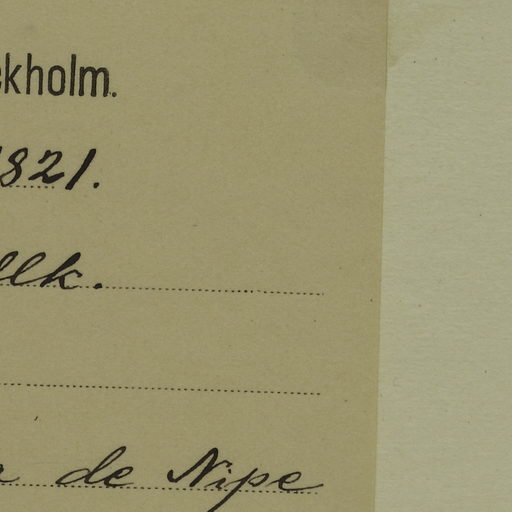 ckholm.
1821.
llk.
de Nipe